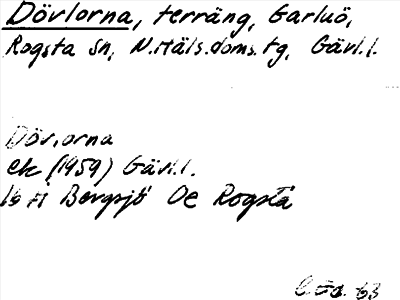 Dövlorna, terräng, Garluö,
Rogsta sn, N.Häls.doms.tg, Gävl.l.
Döv,orna
ek (1959) Gävl.l.
16 Bergsjö Oe Rogsta
63